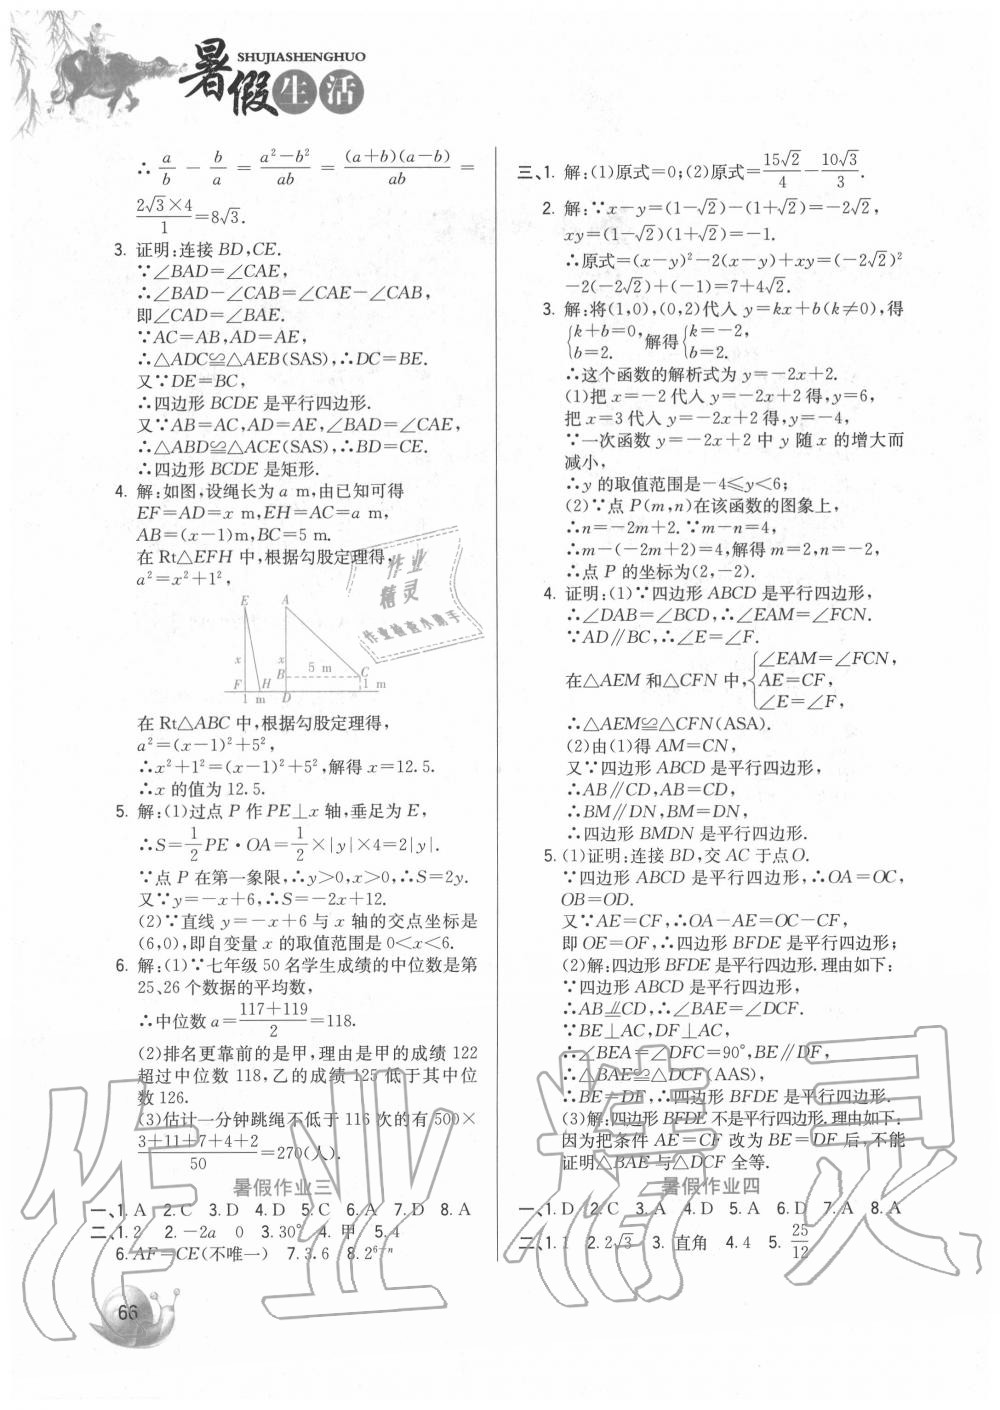 SHUJIASHENGHUO
暑假生活
∴a/b－b/a＝(a²－b²)/ab＝(a＋b)(a－b)/ab＝
(2√3×4)/1＝8√3.
3. 证明:连接 BD,CE.
∵∠BAD＝∠CAE,
∴∠BAD－∠CAB＝∠CAE－∠CAB,
即∠CAD＝∠BAE.
∵AC＝AB,AD＝AE,
∴△ADC≌△AEB(SAS),∴DC＝BE.
又∵DE＝BC,
∴四边形 BCDE 是平行四边形.
又∵AB＝AC,AD＝AE,∠BAD＝∠CAE,
∴△ABD≌△ACE(SAS),∴BD＝CE.
∴四边形 BCDE 是矩形.
4. 解:如图,设绳长为 a m,由已知可得
EF＝AD＝x m,EH＝AC＝a m,
AB＝(x－1)m,BC＝5 m.
在 Rt△EFH 中,根据勾股定理得,
a²＝x²＋1²,
E A
x x 5 m
B C
F H D 1 m
1 m
在 Rt△ABC 中,根据勾股定理得,
a²＝(x－1)²＋5²,
∴x²＋1²＝(x－1)²＋5²,解得 x＝12.5.
∴x 的值为 12.5.
5. 解:(1)过点 P 作 PE⊥x 轴,垂足为 E,
∴S＝1/2 PE·OA＝1/2×|y|×4＝2|y|.
∵点 P 在第一象限,∴y>0,x>0,∴S＝2y.
又∵y＝－x＋6,∴S＝－2x＋12.
(2)∵直线 y＝－x＋6 与 x 轴的交点坐标是
(6,0),即自变量 x 的取值范围是 0<x<6.
6. 解:(1)∵七年级 50 名学生成绩的中位数是第
25、26 个数据的平均数,
∴中位数 a＝(117＋119)/2＝118.
(2)排名更靠前的是甲,理由是甲的成绩 122
超过中位数 118,乙的成绩 125 低于其中位
数 126.
(3)估计一分钟跳绳不低于 116 次的有 500×
(3＋11＋7＋4＋2)/50＝270(人).
暑假作业三
一、1. A 2. C 3. D 4. D 5. C 6. A 7. D 8. A
二、1. 2 2. －2a 0 3. 30° 4. 甲 5. 4
6. AF＝CE(不唯一) 7. 3.6 8. 2⁶⁻ⁿ
66
三、1. 解:(1)原式＝0;(2)原式＝15√2/4－10√3/3.
2. 解:∵x－y＝(1－√2)－(1＋√2)＝－2√2,
xy＝(1－√2)(1＋√2)＝－1.
∴原式＝(x－y)²－2(x－y)＋xy＝(－2√2)²
－2(－2√2)＋(－1)＝7＋4√2.
3. 解:将(1,0),(0,2)代入 y＝kx＋b(k≠0),得
{k＋b＝0, b＝2. 解得{k＝－2, b＝2.
∴这个函数的解析式为 y＝－2x＋2.
(1)把 x＝－2 代入 y＝－2x＋2 得,y＝6,
把 x＝3 代入 y＝－2x＋2 得,y＝－4,
∵一次函数 y＝－2x＋2 中 y 随 x 的增大而
减小,
∴y 的取值范围是－4≤y<6;
(2)∵点 P(m,n)在该函数的图象上,
∴n＝－2m＋2.∵m－n＝4,
∴m－(－2m＋2)＝4,解得 m＝2,n＝－2,
∴点 P 的坐标为(2,－2).
4. 证明:(1)∵四边形 ABCD 是平行四边形,
∴∠DAB＝∠BCD,∴∠EAM＝∠FCN.
∵AD∥BC,∴∠E＝∠F.
在△AEM 和△CFN 中,{∠EAM＝∠FCN, AE＝CF, ∠E＝∠F,
∴△AEM≌△CFN(ASA).
(2)由(1)得 AM＝CN,
又∵四边形 ABCD 是平行四边形,
∴AB∥CD,AB＝CD,
∴BM∥DN,BM＝DN,
∴四边形 BMDN 是平行四边形.
5. (1)证明:连接 BD,交 AC 于点 O.
∵四边形 ABCD 是平行四边形,∴OA＝OC,
OB＝OD.
又∵AE＝CF,∴OA－AE＝OC－CF,
即 OE＝OF,∴四边形 BFDE 是平行四边形;
(2)解:四边形 BFDE 是平行四边形. 理由如下:
∵四边形 ABCD 是平行四边形,
∴AB∥CD,∴∠BAE＝∠DCF.
∵BE⊥AC,DF⊥AC,
∴∠BEA＝∠DFC＝90°,BE∥DF,
∴△BAE≌△DCF(AAS),
∴BE＝DF,∴四边形 BFDE 是平行四边形.
(3)解:四边形 BFDE 不是平行四边形. 理由如下:
因为把条件 AE＝CF 改为 BE＝DF 后,不能
证明△BAE 与△DCF 全等.
暑假作业四
一、1. D 2. C 3. A 4. D 5. A 6. D 7. A 8. A
二、1. 1 2. 2√3 3. 直角 4. 4 5. 25/12
作业
精灵
作业检查小助手
作业精灵